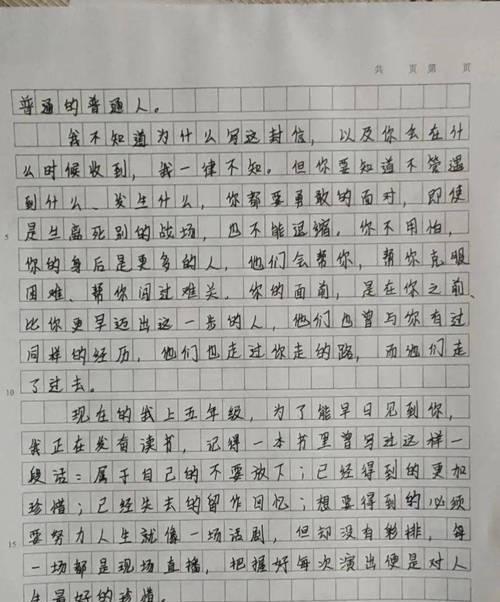 共 页 第 页
普通的普通人。
我不知道为什么写这封信，以及你会在什
么时候收到，我一律不知。但你要知道不管遇
到什么、发生什么，你都要勇敢的面对，即使
是生离死别的战场，也不能退缩。你不用怕，
5
你的身后是更多的人，他们会帮你，帮你克服
困难、帮你闯过难关。你的面前，是在你之前、
比你更早迈出这一步的人，他们也曾与你有过
同样的经历，他们也走过你走的路，而他们走
10
了过去。
现在的我上五年级，为了能早日见到你，
我正在发奋读书，记得一本书里曾写过这样一
段话：属于自己的不要放下；已经得到的更加
珍惜；已经失去的留作回忆；想要得到的必须
要努力人生就像一场话剧，但却没有彩排，每
15
一场都是现场直播，把握好每次演出便是对人
生最好的珍惜。